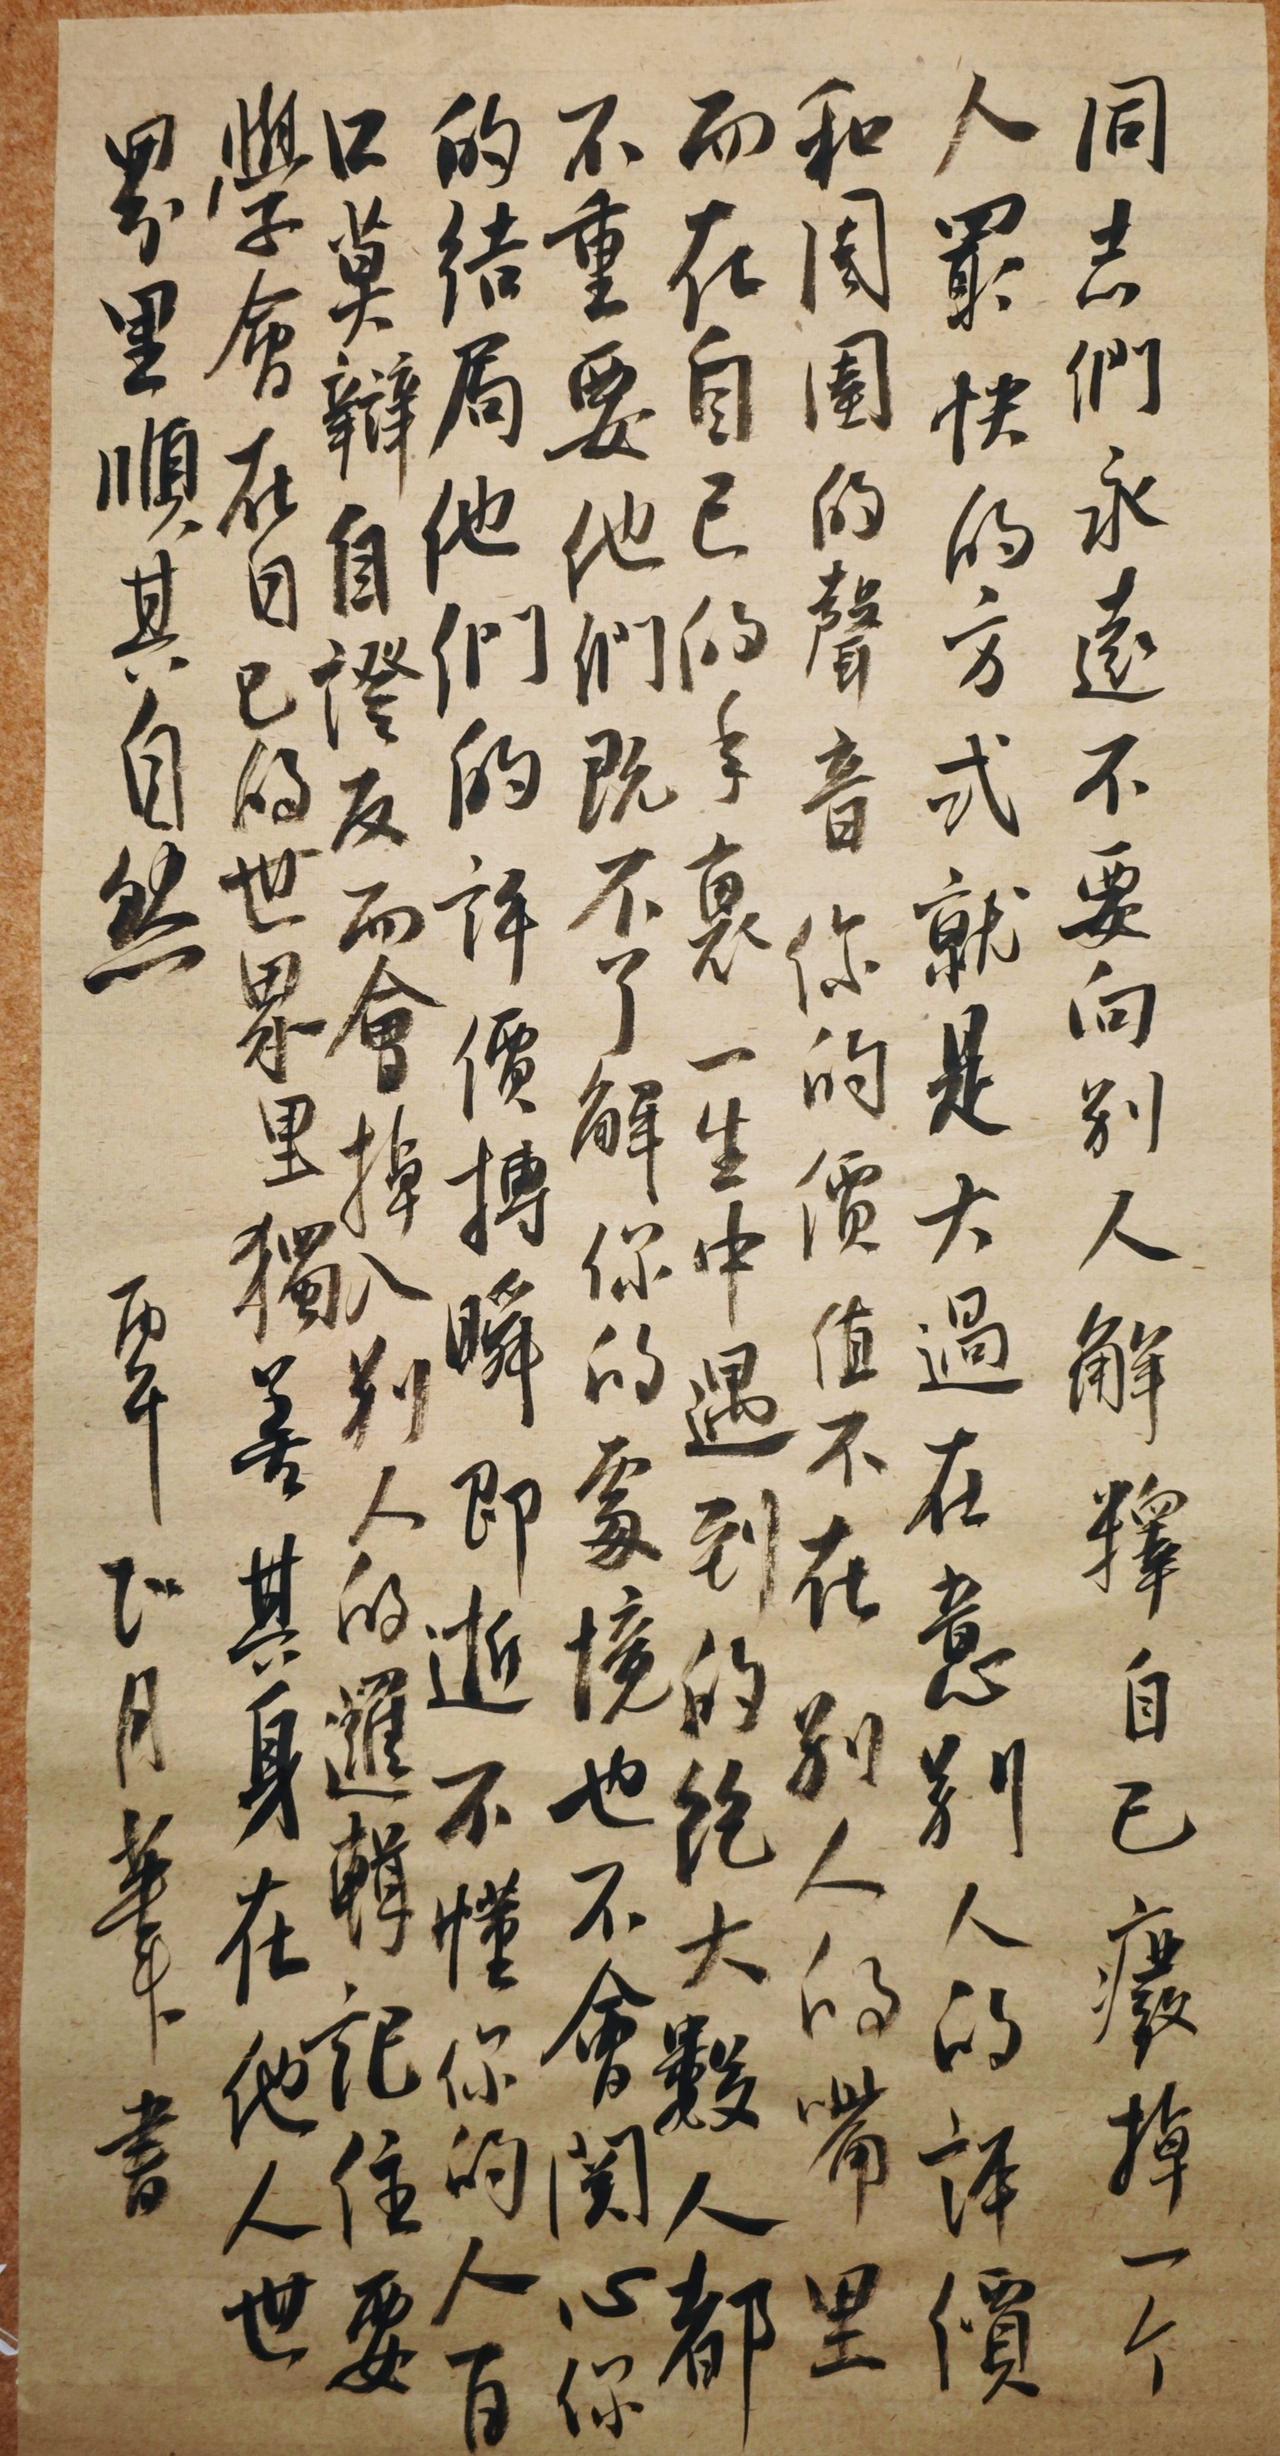 同志們永遠不要向别人解釋自己廢掉一个
人最快的方式就是大過在意别人的評價
和周圍的聲音你的價值不在别人的嘴里
而在自己的手裏一生中遇到的絶大數人都
不重要他們既不了解你的處境也不會関心你
的結局他們的評價摶瞬即逝不懂你的人百
口莫辯自證反而會掉入别人的邏輯記住要
學會在自己的世界里獨善其身在他人世
界里順其自然
月華書